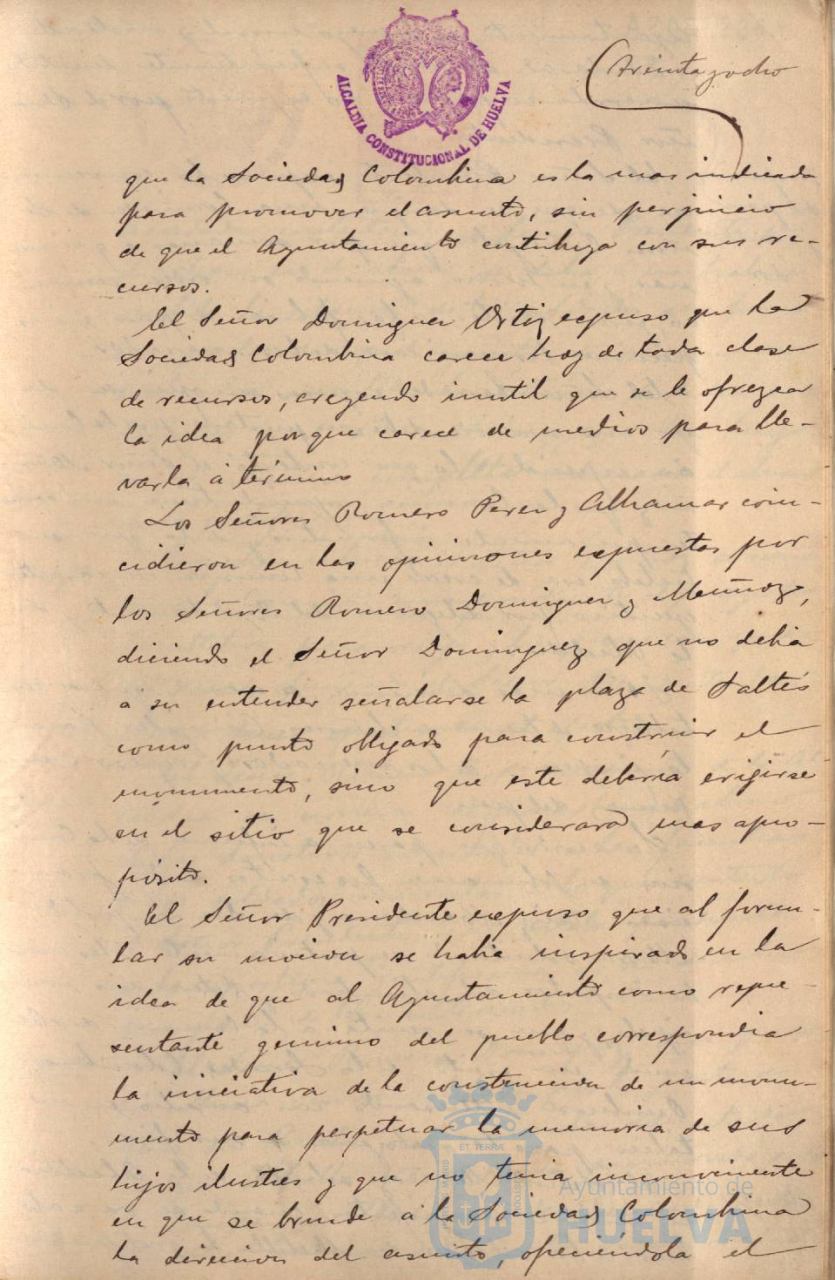 ALCALDIA CONSTITUCIONAL DE HUELVA
Treinta y ocho
que la Sociedad Colombina es la mas indicada
para promover el asunto, sin perjuicio
de que el Ayuntamiento contribuya con sus re-
cursos.
El Señor Dominguez Ortiz expuso que la
Sociedad Colombina carece hoy de toda clase
de recursos, creyendo inutil que se le ofrezca
la idea porque carece de medios para lle-
varla á término
Los Señores Romero Perez y Alhamar coin-
cidieron en las opiniones expuestas por
los Señores Romero Dominguez y Muñoz,
diciendo el Señor Dominguez que no debia
a su entender señalarse la plaza de Saltés
como punto obligado para construir el
monumento, sino que este deberia erigirse
en el sitio que se considerara mas apro-
pósito.
El Señor Presidente expuso que al formu-
lar su mocion se habia inspirado en la
idea de que al Ayuntamiento como repre-
sentante genuino del pueblo correspondia
la iniciativa de la construccion de un monu-
mento para perpetuar la memoria de sus
hijos ilustres y que no tenia inconveniente
en que se brinde á la Sociedad Colombina
la direccion del asunto, ofreciéndola el
ET TERRA
Ayuntamiento de
HUELVA